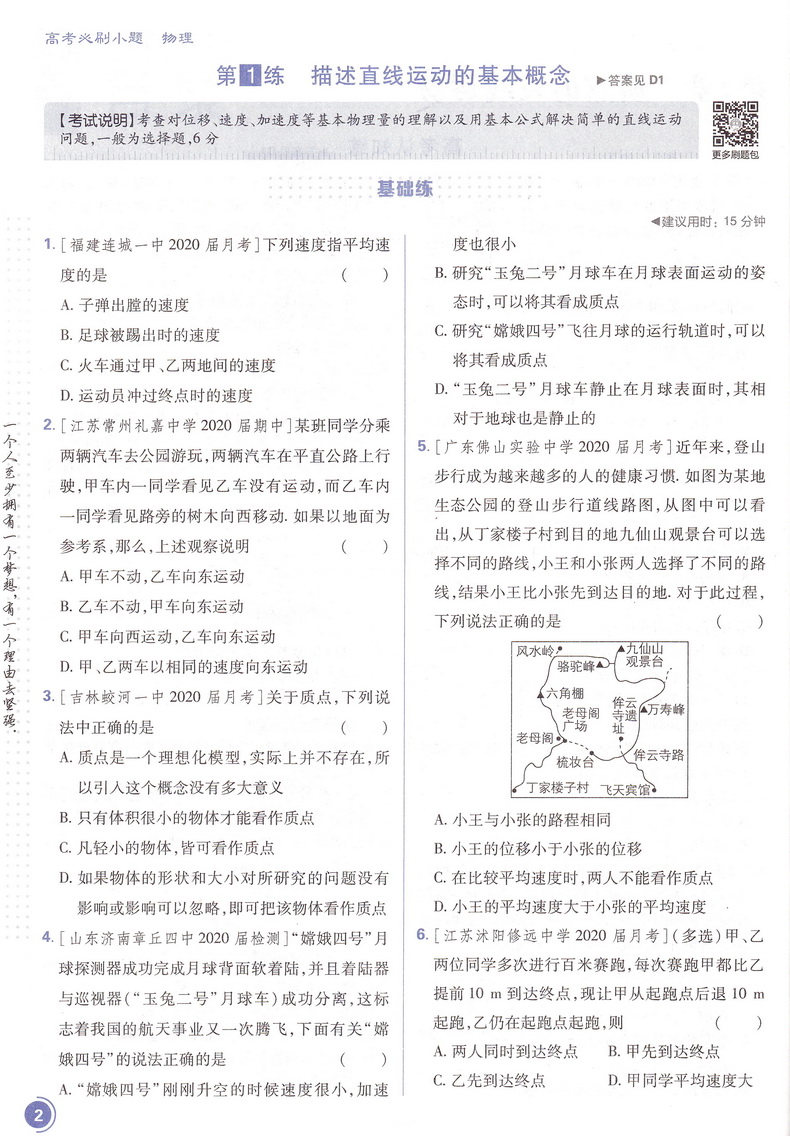 高考必刷小题 物理
第1练 描述直线运动的基本概念 ▶答案见 D1
【考试说明】考查对位移、速度、加速度等基本物理量的理解以及用基本公式解决简单的直线运动
问题,一般为选择题,6 分
更多刷题包
基础练
◀建议用时: 15 分钟
1. [福建连城一中 2020 届月考]下列速度指平均速
度的是 ( )
A. 子弹出膛的速度
B. 足球被踢出时的速度
C. 火车通过甲、乙两地间的速度
D. 运动员冲过终点时的速度
2. [江苏常州礼嘉中学 2020 届期中]某班同学分乘
两辆汽车去公园游玩,两辆汽车在平直公路上行
驶,甲车内一同学看见乙车没有运动,而乙车内
一同学看见路旁的树木向西移动. 如果以地面为
参考系,那么,上述观察说明 ( )
A. 甲车不动,乙车向东运动
B. 乙车不动,甲车向东运动
C. 甲车向西运动,乙车向东运动
D. 甲、乙两车以相同的速度向东运动
3. [吉林蛟河一中 2020 届月考]关于质点,下列说
法中正确的是 ( )
A. 质点是一个理想化模型,实际上并不存在,所
以引入这个概念没有多大意义
B. 只有体积很小的物体才能看作质点
C. 凡轻小的物体,皆可看作质点
D. 如果物体的形状和大小对所研究的问题没有
影响或影响可以忽略,即可把该物体看作质点
4. [山东济南章丘四中 2020 届检测]“嫦娥四号”月
球探测器成功完成月球背面软着陆,并且着陆器
与巡视器(“玉兔二号”月球车)成功分离,这标
志着我国的航天事业又一次腾飞,下面有关“嫦
娥四号”的说法正确的是 ( )
A. “嫦娥四号”刚刚升空的时候速度很小,加速
度也很小
B. 研究“玉兔二号”月球车在月球表面运动的姿
态时,可以将其看成质点
C. 研究“嫦娥四号”飞往月球的运行轨道时,可以
将其看成质点
D. “玉兔二号”月球车静止在月球表面时,其相
对于地球也是静止的
5. [广东佛山实验中学 2020 届月考]近年来,登山
步行成为越来越多的人的健康习惯. 如图为某地
生态公园的登山步行道线路图,从图中可以看
出,从丁家楼子村到目的地九仙山观景台可以选
择不同的路线,小王和小张两人选择了不同的路
线,结果小王比小张先到达目的地. 对于此过程,
下列说法正确的是 ( )
风水岭
骆驼峰
九仙山
观景台
六角棚
老母阁
广场
侔云
寺遗
址
万寿峰
老母阁
梳妆台
侔云寺路
丁家楼子村
飞天宾馆
A. 小王与小张的路程相同
B. 小王的位移小于小张的位移
C. 在比较平均速度时,两人不能看作质点
D. 小王的平均速度大于小张的平均速度
6. [江苏沭阳修远中学 2020 届月考](多选)甲、乙
两位同学多次进行百米赛跑,每次赛跑甲都比乙
提前 10 m 到达终点,现让甲从起跑点后退 10 m
起跑,乙仍在起跑点起跑,则 ( )
A. 两人同时到达终点 B. 甲先到达终点
C. 乙先到达终点 D. 甲同学平均速度大
一个人至少拥有一个梦想,有一个理由去坚强.
2